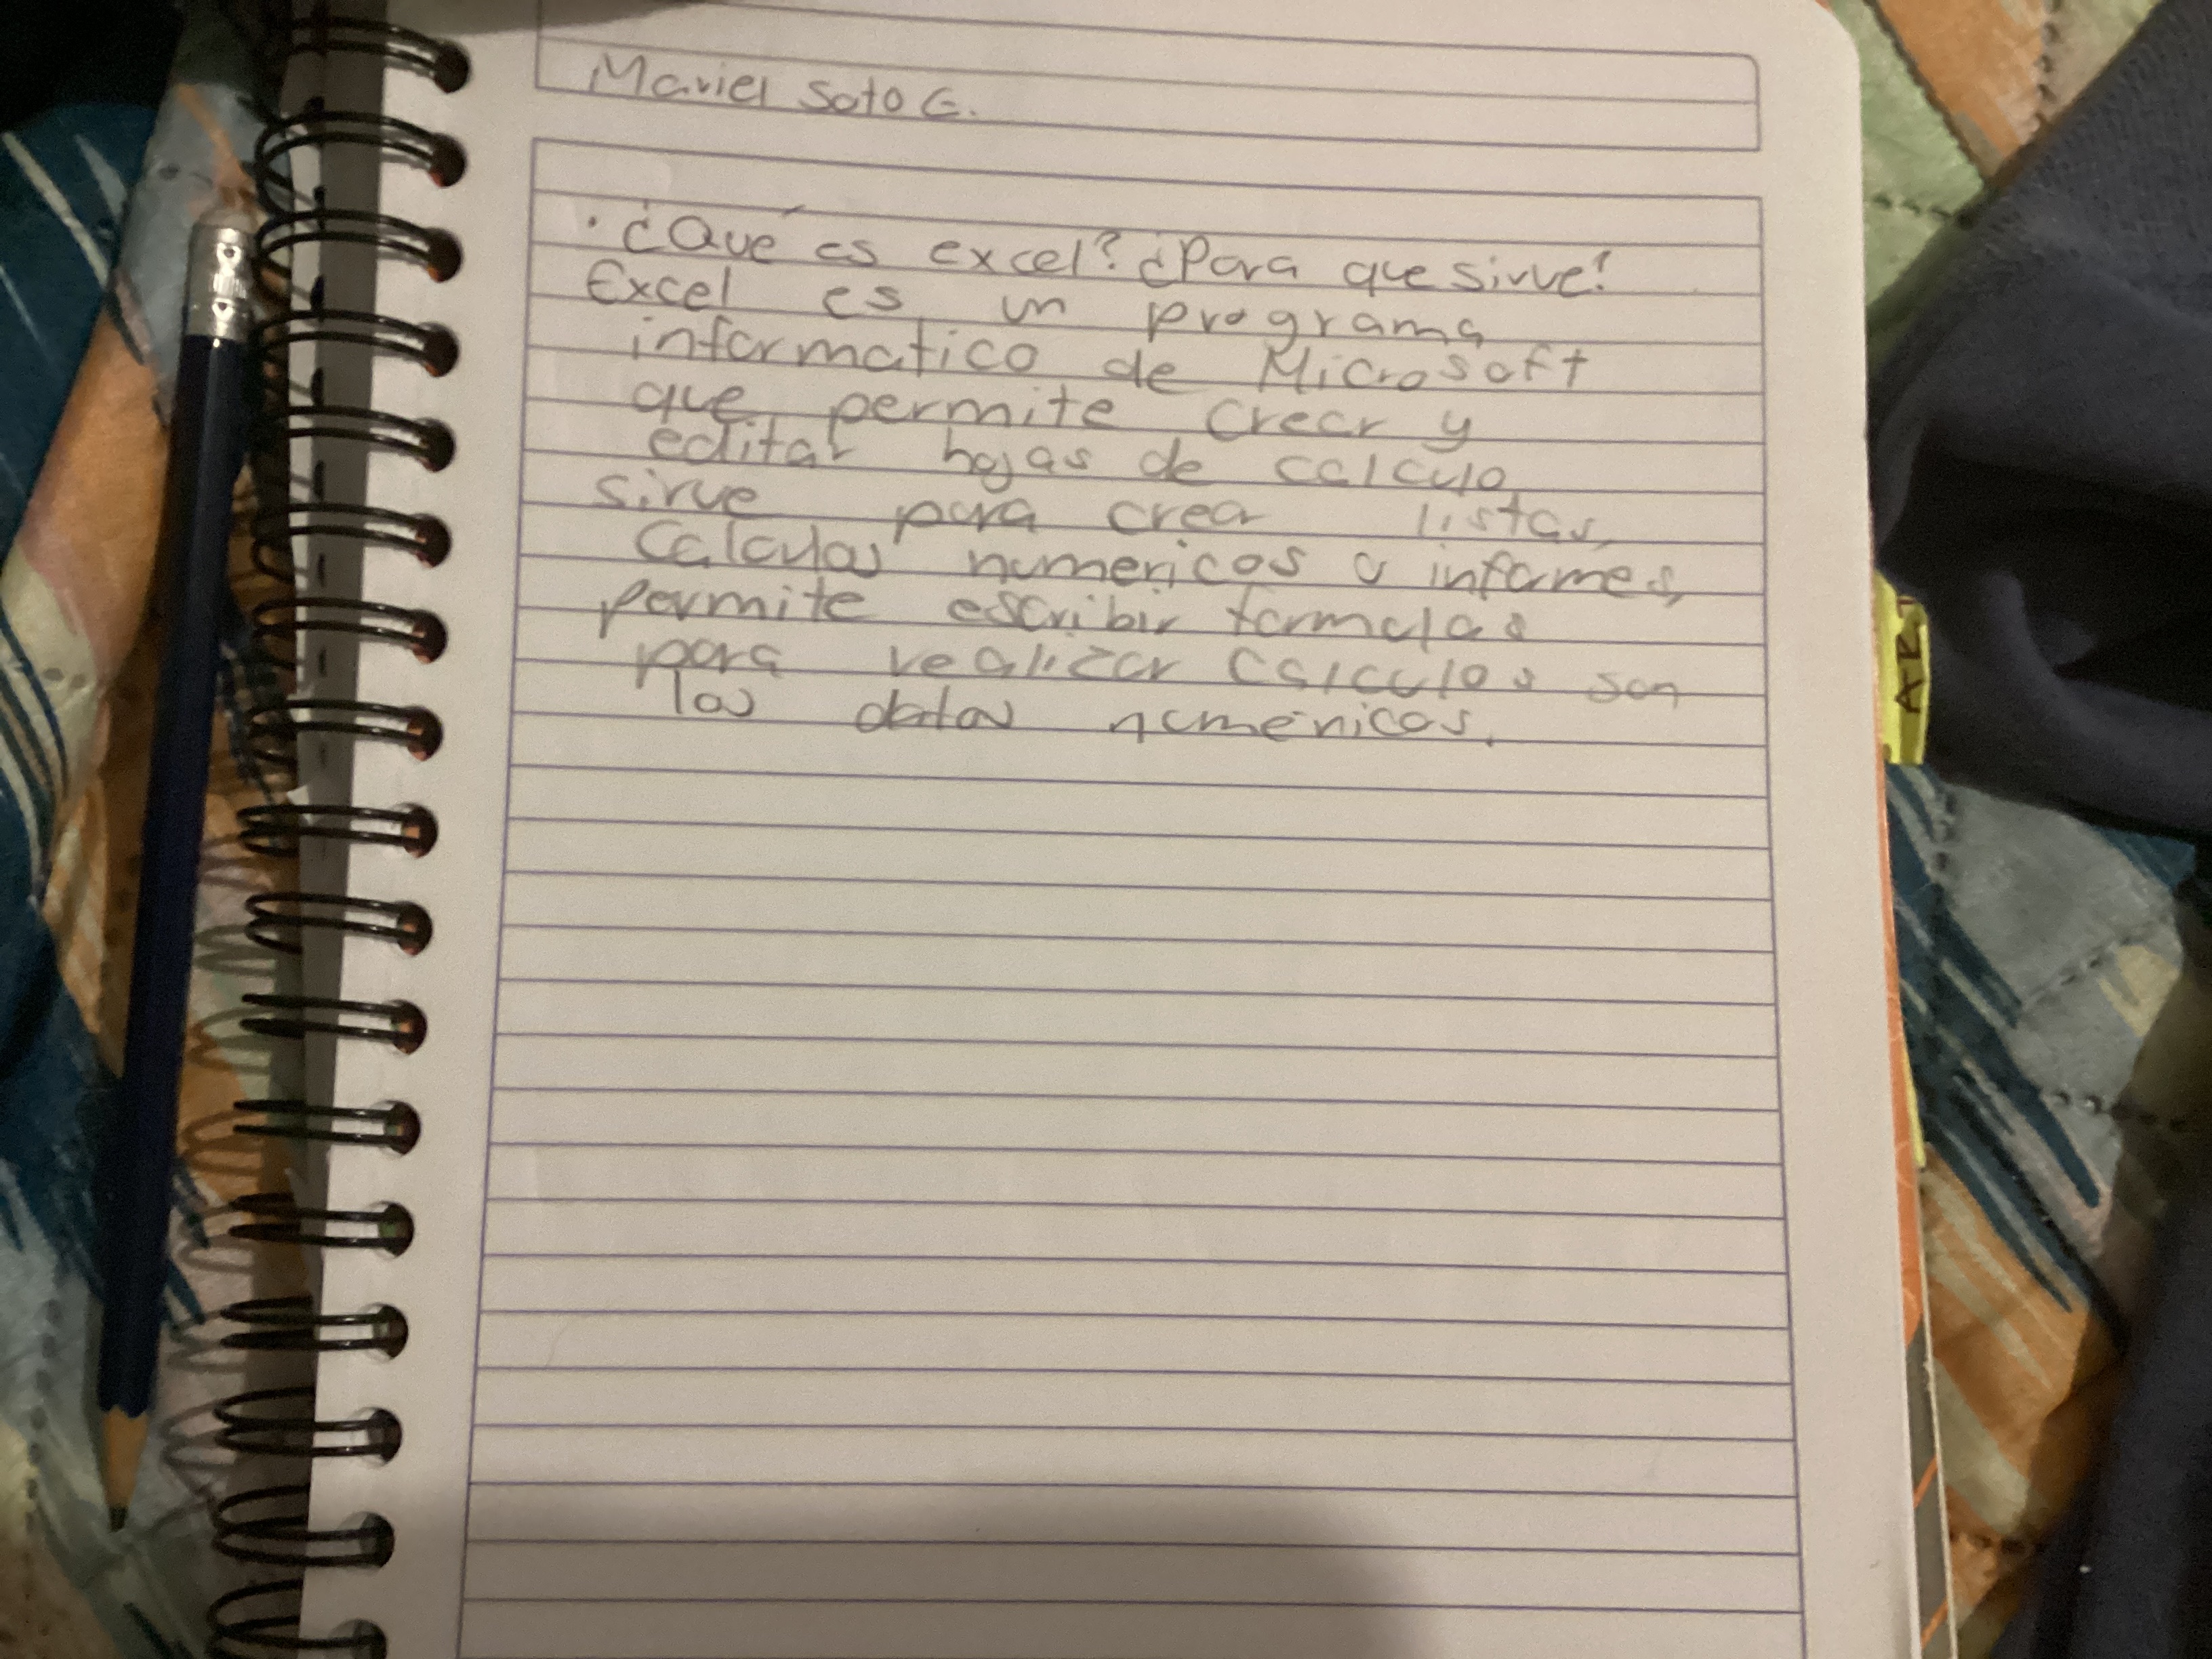 Mariel Soto G.
· ¿Qué es excel? ¿Para que sirve?
Excel es un programa
informatico de Microsoft
que permite crear y
editar hojas de calculo
sirve para crear listas,
Calculos numericos o informes,
permite escribir formulas
para realizar calculos son
los datos numéricos.
ART